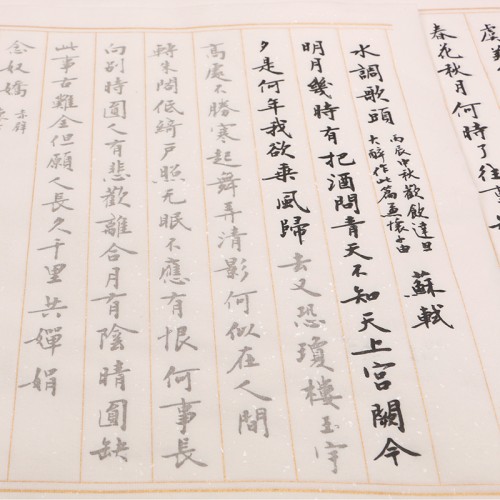 虞美
春花秋月何時了往
水調歌頭
丙辰中秋歡飲達旦
大醉作此篇兼懷子由
蘇軾
明月幾時有把酒問青天不知天上宮闕今
夕是何年我欲乘風歸去又恐瓊樓玉宇
高處不勝寒起舞弄清影何似在人間
轉朱閣低綺戶照无眠不應有恨何事長
向別時圓人有悲歡離合月有陰晴圓缺
此事古難全但願人長久千里共嬋娟
念奴嬌
赤壁